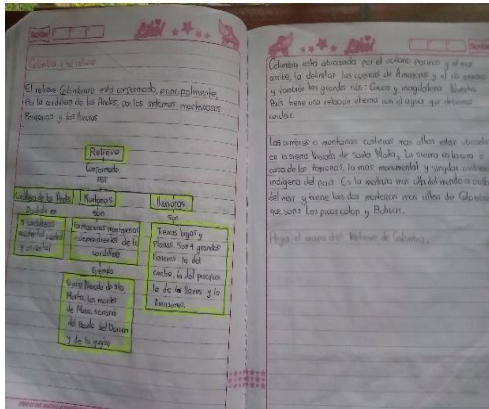 Colombia y su relieve
El relieve Colombiano esta conformado, principalmente,
Por la cordillera de los Andes, por los sistemas montañosos
Perifericos y las llanuras
Relieve
Conformado
por
Cordillera de los Andes
Montañas
llanuras
Dividido en
son
son
3 cordilleras
occidental central
y oriental
formaciones montañosas
independientes de la
cordillera
Ejemplo
Sierra Nevada de Sta
Marta, los montes
de Maria, serrania
del Baudo del Darien
y de la
Tierras bajas y
Planas. Son 4 grandes
llanuras: la del
caribe, la del pacifico
la de los llanos y la
Amazonas.
Colombia esta atravesada por el oceano Pacifico y el mar
caribe, la delimitan las cuencas de Amazonas y el rio
y tambien los grandes rios: Cauca y magdalena. Nuestro
Pais tiene una relacion eterna con el agua que debemos
cuidar.
Las cumbres o montañas costeras mas altas estan ubicadas
en la sierra Nevada de Santa Marta, La sierra es la
casa de los tayronas, la mas monumental y singular
indigena del pais. Es la montaña mas alta del mundo a orillas
del mar y tiene las dos montañas mas altas de Colombia
que son: Los picos colon y Bolivar.
el mapa del Relieve de Colombia.